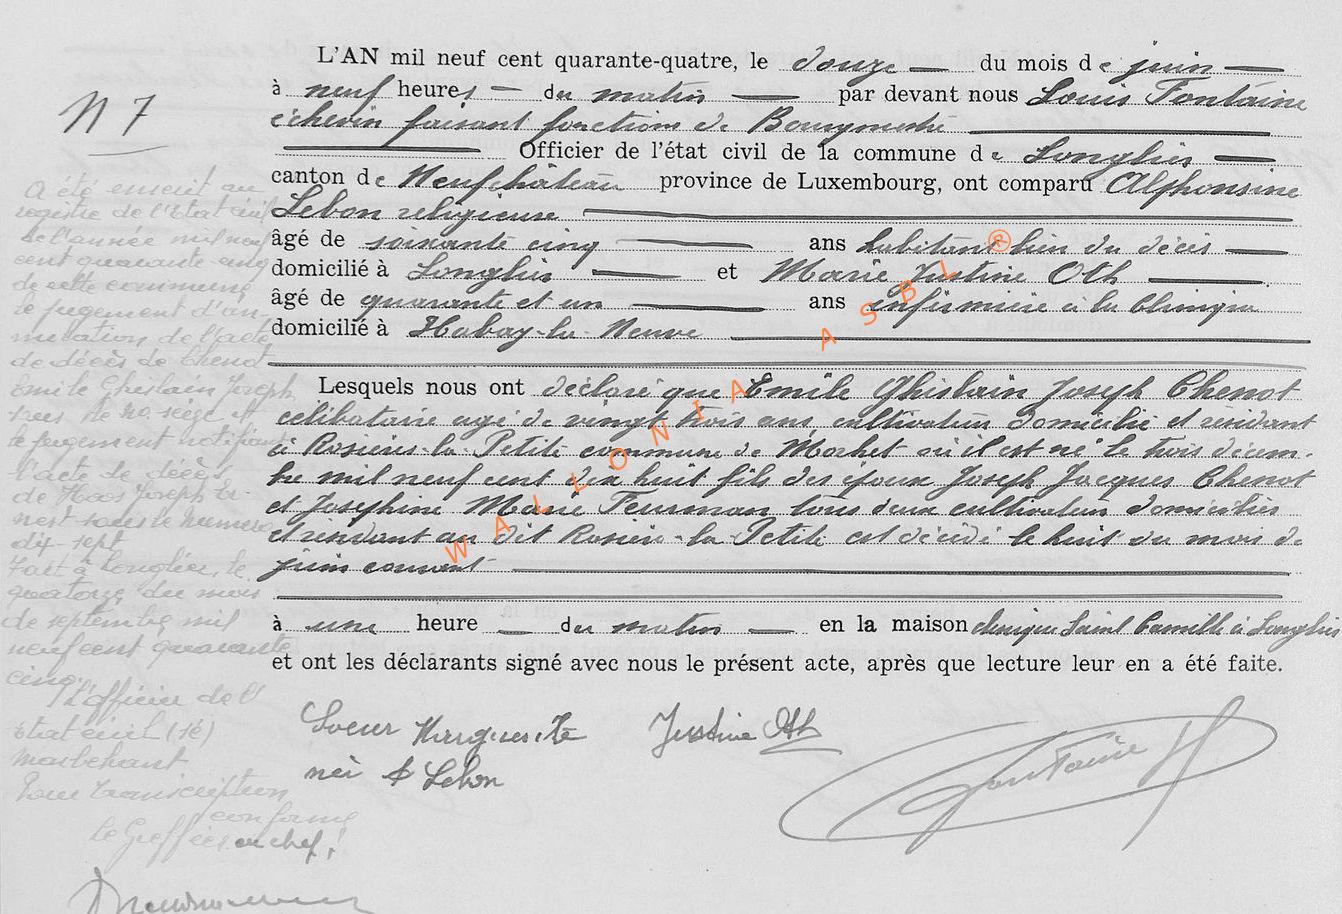 N 7
L'AN mil neuf cent quarante-quatre, le douze du mois de juin
à neuf heures du matin par devant nous Louis Fontaine
échevin faisant fonctions de Bourgmestre
Officier de l'état civil de la commune de Longlier
canton de Neufchâteau province de Luxembourg, ont comparu Alphonsine
Lebon religieuse
âgé de soixante cinq ans habitant lieu du décès
domicilié à Longlier et Marie Justine Oth
âgé de quarante et un ans infirmière à la Clinique
domicilié à Habay-la-Neuve
Lesquels nous ont déclaré que Emile Ghislain Joseph Chenot
célibataire agé de vingt trois ans, cultivateur domicilié et résidant
à Rosières-la-Petite commune de Morhet où il est né le trois décem-
bre mil neuf cent dix huit fils des époux Joseph Jacques Chenot
et Joséphine Marie tous deux cultivateurs domiciliés
et résidant au dit Rosière-la-Petite est décédé le huit du mois de
juin courant
à une heure du matin en la maison clinique Saint Camille à Longlier
et ont les déclarants signé avec nous le présent acte, après que lecture leur en a été faite.
Soeur Marguerite
née A Lebon
Justine Oth
Fontaine
A été inscrit au
registre de l'Etat civil
de l'année mil neuf
cent quarante cinq
de cette commune
le jugement d'an-
nulation de l'acte
de décès de Chenot
Emile Ghislain Joseph
le no seize et
le jugement notifiant
l'acte de décès
de Haas Joseph Er-
nest sous le numero
dix-sept
Fait à Longlier, le
quatorze du mois
de septembre mil
neuf cent quarante
cinq.
L'Officier de l'
Etat civil (sé)
Marbehant
Pour transcription
conforme
le Greffier en chef,
WALLONIA ASBL ®